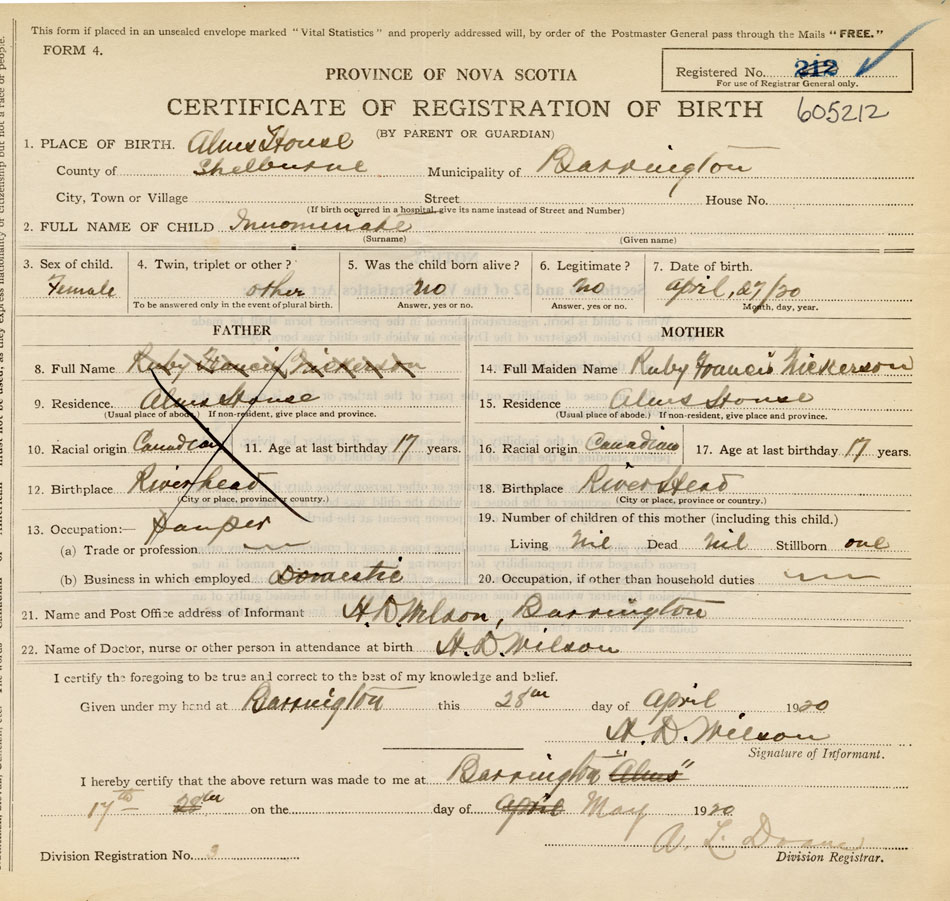 This form if placed in an unsealed envelope marked "Vital Statistics" and properly addressed will, by order of the Postmaster General pass through the Mails "FREE."
FORM 4.
Registered No. 212
For use of Registrar General only.
PROVINCE OF NOVA SCOTIA
CERTIFICATE OF REGISTRATION OF BIRTH 605212
(BY PARENT OR GUARDIAN)
1. PLACE OF BIRTH. Alms House
County of Shelburne Municipality of Barrington
City, Town or Village Street House No.
(If birth occurred in a hospital, give its name instead of Street and Number)
2. FULL NAME OF CHILD Innominate
(Surname) (Given name)
3. Sex of child. 4. Twin, triplet or other? 5. Was the child born alive? 6. Legitimate? 7. Date of birth.
Female other no no April, 27/20
To be answered only in the event of plural birth. Answer, yes or no. Answer, yes or no. Month, day, year.
FATHER MOTHER
8. Full Name Ruby Francis Nickerson 14. Full Maiden Name Ruby Francis Nickerson
9. Residence. Alms House 15. Residence Alms House
(Usual place of abode.) If non-resident, give place and province. (Usual place of abode.) If non-resident, give place and province.
10. Racial origin Canadian 11. Age at last birthday 17 years. 16. Racial origin Canadian 17. Age at last birthday 17 years.
12. Birthplace River head 18. Birthplace River Head
(City or place, province or country.) (City or place, province or country.)
13. Occupation:— Pauper 19. Number of children of this mother (including this child.)
(a) Trade or profession Living Nil Dead Nil Stillborn one
(b) Business in which employed Domestic 20. Occupation, if other than household duties
21. Name and Post Office address of Informant H. D. Wilson, Barrington
22. Name of Doctor, nurse or other person in attendance at birth H. D. Wilson
I certify the foregoing to be true and correct to the best of my knowledge and belief.
Given under my hand at Barrington this 28th day of April 1920
H. D. Wilson
Signature of Informant.
I hereby certify that the above return was made to me at Barrington "Alms"
17th 28th on the day of April May 1920
A. L. Doane
Division Registration No. 3 Division Registrar.